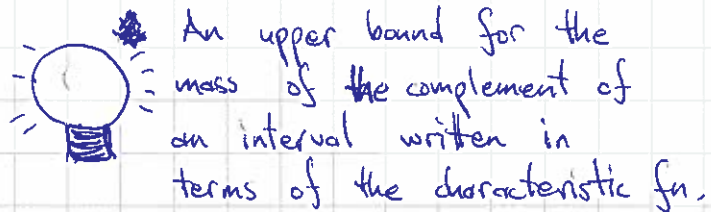 An upper bound for the
mass of the complement of
an interval written in
terms of the characteristic fn.